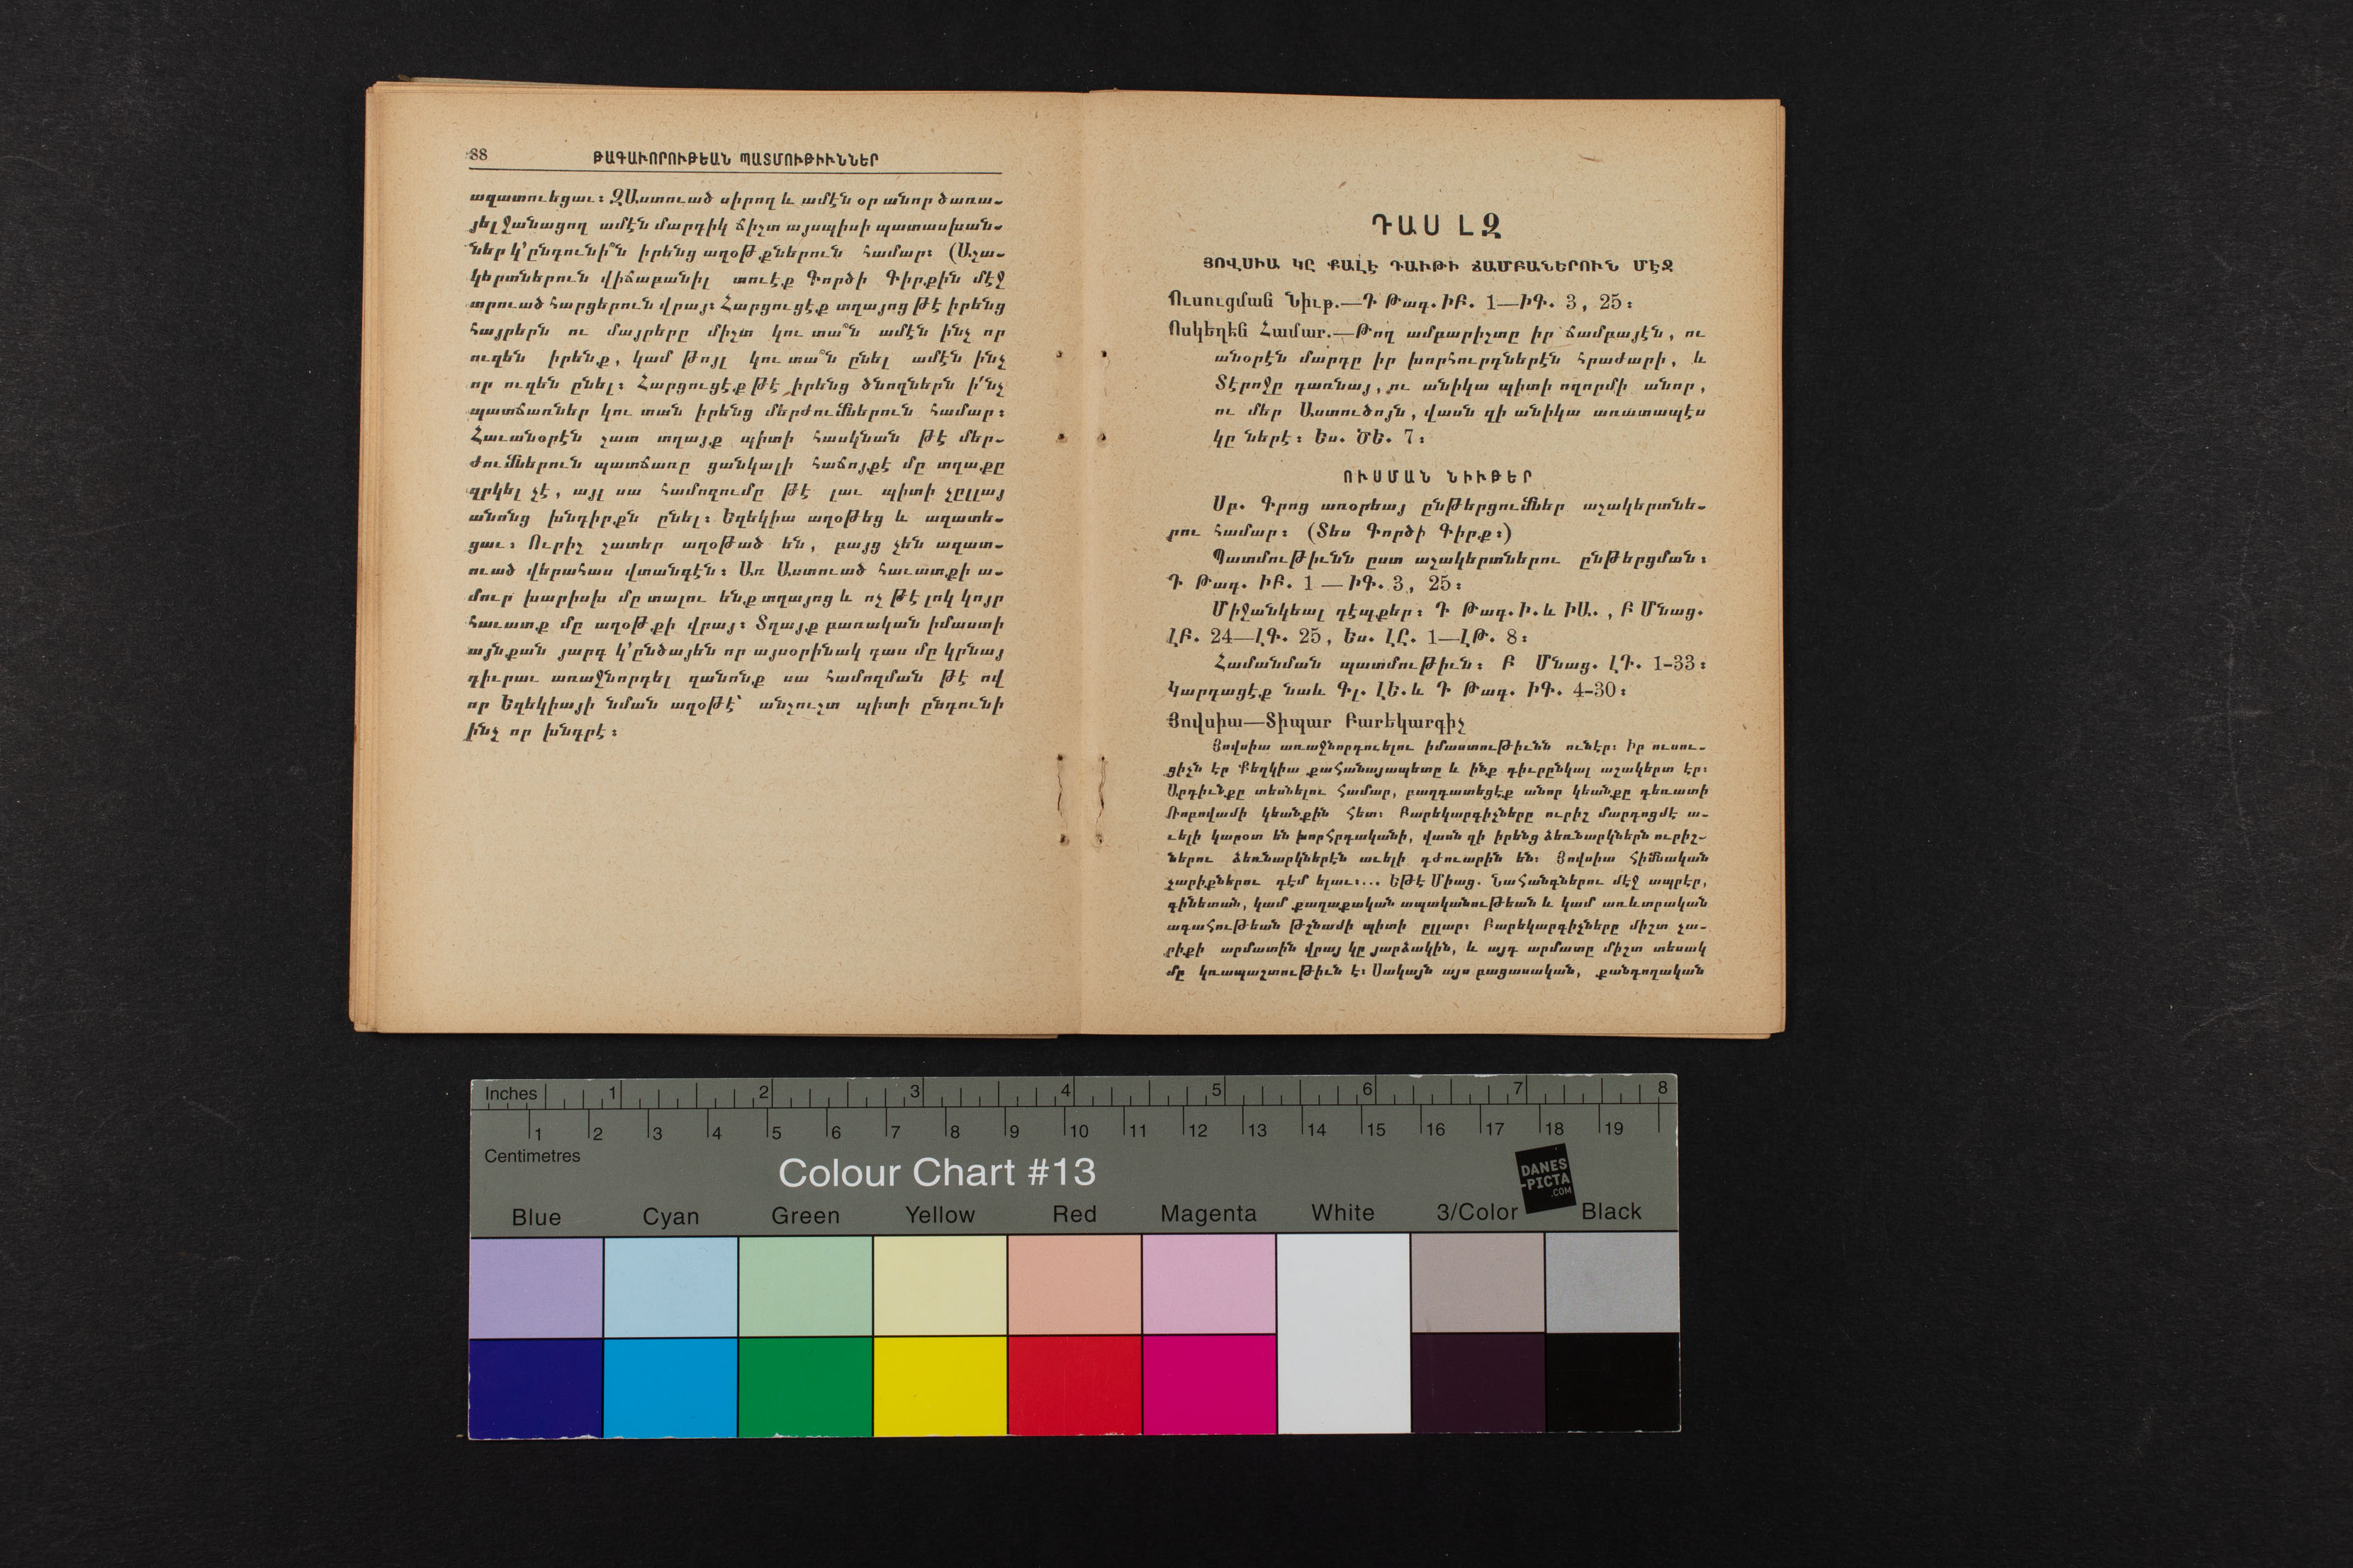 88
ԹԱԳԱՒՈՐՈՒԹԵԱՆ ՊԱՏՄՈՒԹԻՒՆՆԵՐ
ազատուեցաւ։ ԶԱստուած սիրող և ամէն օր անոր ծառա-
յել ջանացող ամէն մարդիկ ճիշտ այսպիսի պատասխան-
ներ կ՚ընդունի՞ն իրենց աղօթքներուն համար։ (Աշա-
կերտներուն վիճաբանիլ տուէք Գործի Գիրքին մէջ
տրուած հարցերուն վրայ։ Հարցուցէք տղայոց թէ իրենց
հայրերն ու մայրերը միշտ կու տա՞ն ամէն ինչ որ
ուզեն իրենք, կամ թոյլ կու տա՞ն ընել ամէն ինչ
որ ուզեն ընել։ Հարցուցէք թէ իրենց ծնողներն ի՛նչ
պատճառներ կու տան իրենց մերժումներուն համար։
Հաւանօրէն շատ տղայք պիտի հասկնան թէ մեր-
ժումներուն պատճառը ցանկալի հաճոյքէ մը տղաքը
զրկել չէ, այլ սա համոզումը թէ լաւ պիտի չըլլայ
անոնց խնդիրքն ընել։ Եզեկիա աղօթեց և ազատե-
ցաւ։ Ուրիշ շատեր աղօթած են, բայց չեն ազատ-
ուած վերահաս վտանգէն։ Առ Աստուած հաւատքի ա-
մուր խարիսխ մը տալու ենք տղայոց և ոչ թէ լոկ կոյր
հաւատք մը աղօթքի վրայ։ Տղայք բառական իմաստի
այնքան յարգ կ՚ընծայեն որ այսօրինակ դաս մը կրնայ
դիւրաւ առաջնորդել զանոնք սա համոզման թէ ով
որ Եզեկիայի նման աղօթէ՝ անշուշտ պիտի ընդունի
ինչ որ խնդրէ։
ԴԱՍ ԼԶ
ՅՈՎՍԻԱ ԿԸ ՔԱԼԷ ԴԱՒԹԻ ՃԱՄԲԱՆԵՐՈՒՆ ՄԷՋ
Ուսուցման Նիւթ.—Դ Թագ. ԻԲ. 1—ԻԳ. 3, 25։
Ոսկեղէն Համար.—Թող ամբարիշտը իր ճամբայէն, ու
անօրէն մարդը իր խորհուրդներէն հրաժարի, և
Տէրոջը դառնայ, ու անիկա պիտի ողորմի անոր,
ու մեր Աստուծոյն, վասն զի անիկա առատապէս
կը ներէ։ Ես. ԾԵ. 7։
ՈՒՍՄԱՆ ՆԻՒԹԵՐ
Սր. Գրոց առօրեայ ընթերցումներ աշակերտնե-
րու համար։ (Տես Գործի Գիրք։)
Պատմութիւնն ըստ աշակերտներու ընթերցման։
Դ Թագ. ԻԲ. 1 — ԻԳ. 3, 25։
Միջանկեալ դէպքեր։ Դ Թագ. Ի. և ԻԱ., Բ Մնաց.
ԼԲ. 24—ԼԳ. 25, Ես. ԼԸ. 1—ԼԹ. 8։
Համանման պատմութիւն։ Բ Մնաց. ԼԴ. 1-33։
Կարդացէք նաև Գլ. ԼԵ. և Դ Թագ. ԻԳ. 4-30։
Յովսիա—Տիպար Բարեկարգիչ
Յովսիա առաջնորդուելու իմաստութիւնն ունէր։ Իր ուսու-
ցիչն էր Քեղկիա քահանայապետը և ինք դիւրընկալ աշակերտ էր։
Արդիւնքը տեսնելու համար, բաղդատեցէք անոր կեանքը դեռատի
Ռոբովամի կեանքին հետ։ Բարեկարգիչները ուրիշ մարդոցմէ ա-
ւելի կարօտ են խորհրդականի, վասն զի իրենց ձեռնարկներն ուրիշ-
ներու ձեռնարկներէն աւելի դժուարին են։ Յովսիա հիմնական
չարիքներու դէմ ելաւ։... Եթէ Միաց. Նահանգներու մէջ ապրէր,
գինետան, կամ քաղաքական ապականութեան և կամ առևտրական
ագահութեան թշնամի պիտի ըլլար։ Բարեկարգիչները միշտ չա-
րիքի արմատին վրայ կը յարձակին, և այդ արմատը միշտ տեսակ
մը կռապաշտութիւն է։ Սակայն այս բացասական, քանդողական
Inches 1 2 3 4 5 6 7 8
1 2 3 4 5 6 7 8 9 10 11 12 13 14 15 16 17 18 19
Centimetres
Colour Chart #13
DANES
-PICTA
.COM
Blue Cyan Green Yellow Red Magenta White 3/Color Black